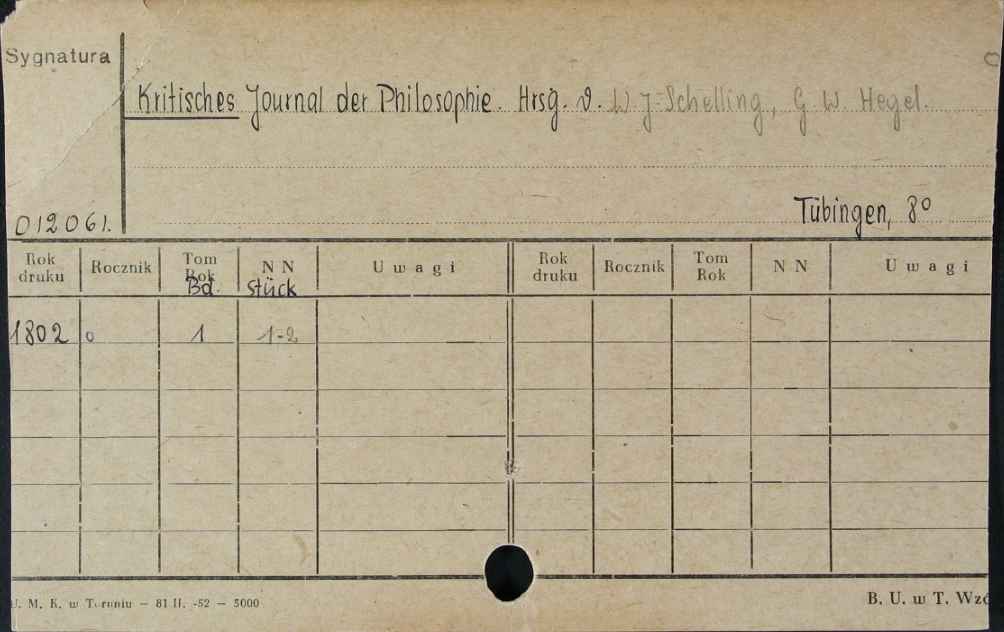 Sygnatura
Kritisches Journal der Philosophie. Hrsg. v. W J Schelling, G W. Hegel.
Tübingen, 8°
012061.
Rok druku Rocznik Tom Rok Bd. N N Stück Uwagi Rok druku Rocznik Tom Rok N N Uwagi
1802 0 1 1-2
U. M. K. w Toruniu — 81 II. -52 — 5000
B. U. w T.